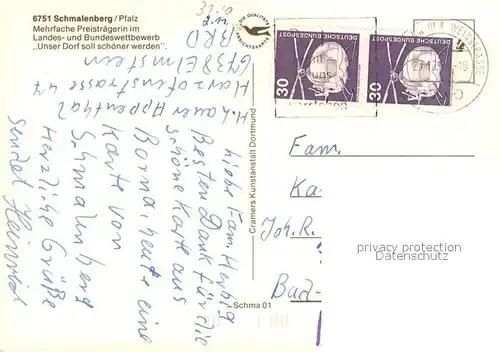 6751 Schmalenberg / Pfalz
Mehrfache Preisträgerin im
Landes- und Bundeswettbewerb
„Unser Dorf soll schöner werden".
BRD
6738 Elmstein
Harzofenstrasse 47
H. Lauer Appenthal
Liebe Fam. Herbig
Besten Dank für die
schöne Karte aus
Borna heute eine
Karte von
Schmalenberg
Herzliche Grüße
sendet Heinrich
Cramers Kunstanstalt Dortmund
Schma 01
DEUTSCHE BUNDESPOST
30
DEUTSCHE BUNDESPOST
30
Fam.
Ka
Joh. R.
Bad-
privacy protection
Datenschutz